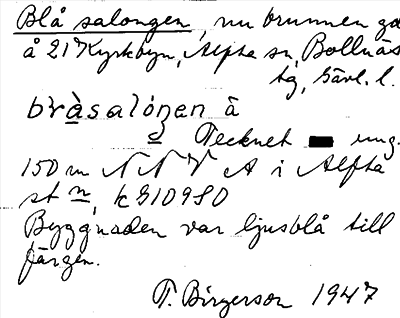 Blå salongen, nu brunnen gd
å 21 Kyrkbyn, Alfta sn, Bollnäs
tg, Gävl. l.
bràsalóŋen å
Tecknet ung.
150 m NNV A i Alfta
st n, k G109 S0
Byggnaden var ljusblå till
färgen.
T. Birgerson 1947